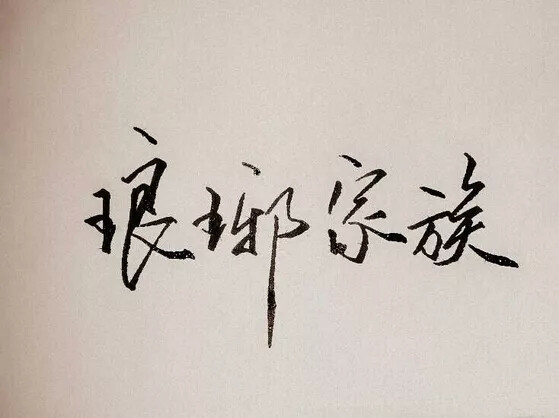 琅琊家族